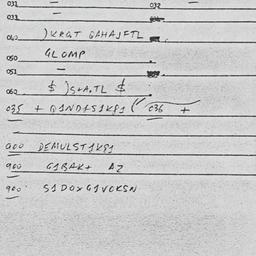 031 — 032 —
033 —
040 ) KRGT GAHAJFTL
050 GLOMP
051 —
060 $ )S+A.TL $
035 + Q1ND+S1KP1 ( 036 +
900 DEMULST1KP1
900 G1BAK+ AZ
900 S1DOXG1VOKSN